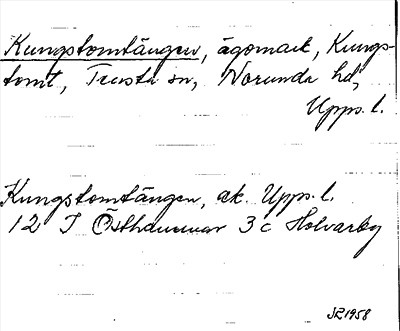 Kungstomtängen, ägomark, Kungs-
tomt, Norunda hd,
Upps. l.
Kungstomtängen, ek. Upps. l.
12 I Östhammar 3 c Holvarby
JR 1958